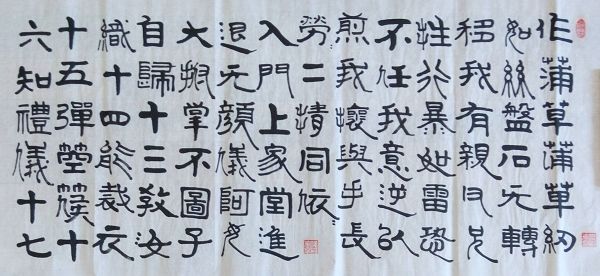 作蒲草蒲草紉
如絲盤石无轉
移我有親父兄
性行暴如雷恐
不任我意逆以
煎我懷舉手長
勞二情同依〻
入門上家堂進
退无顏儀阿母
大拊掌不圖子
自歸十三教汝
織十四能裁衣
十五彈箜篌十
六知禮儀十七